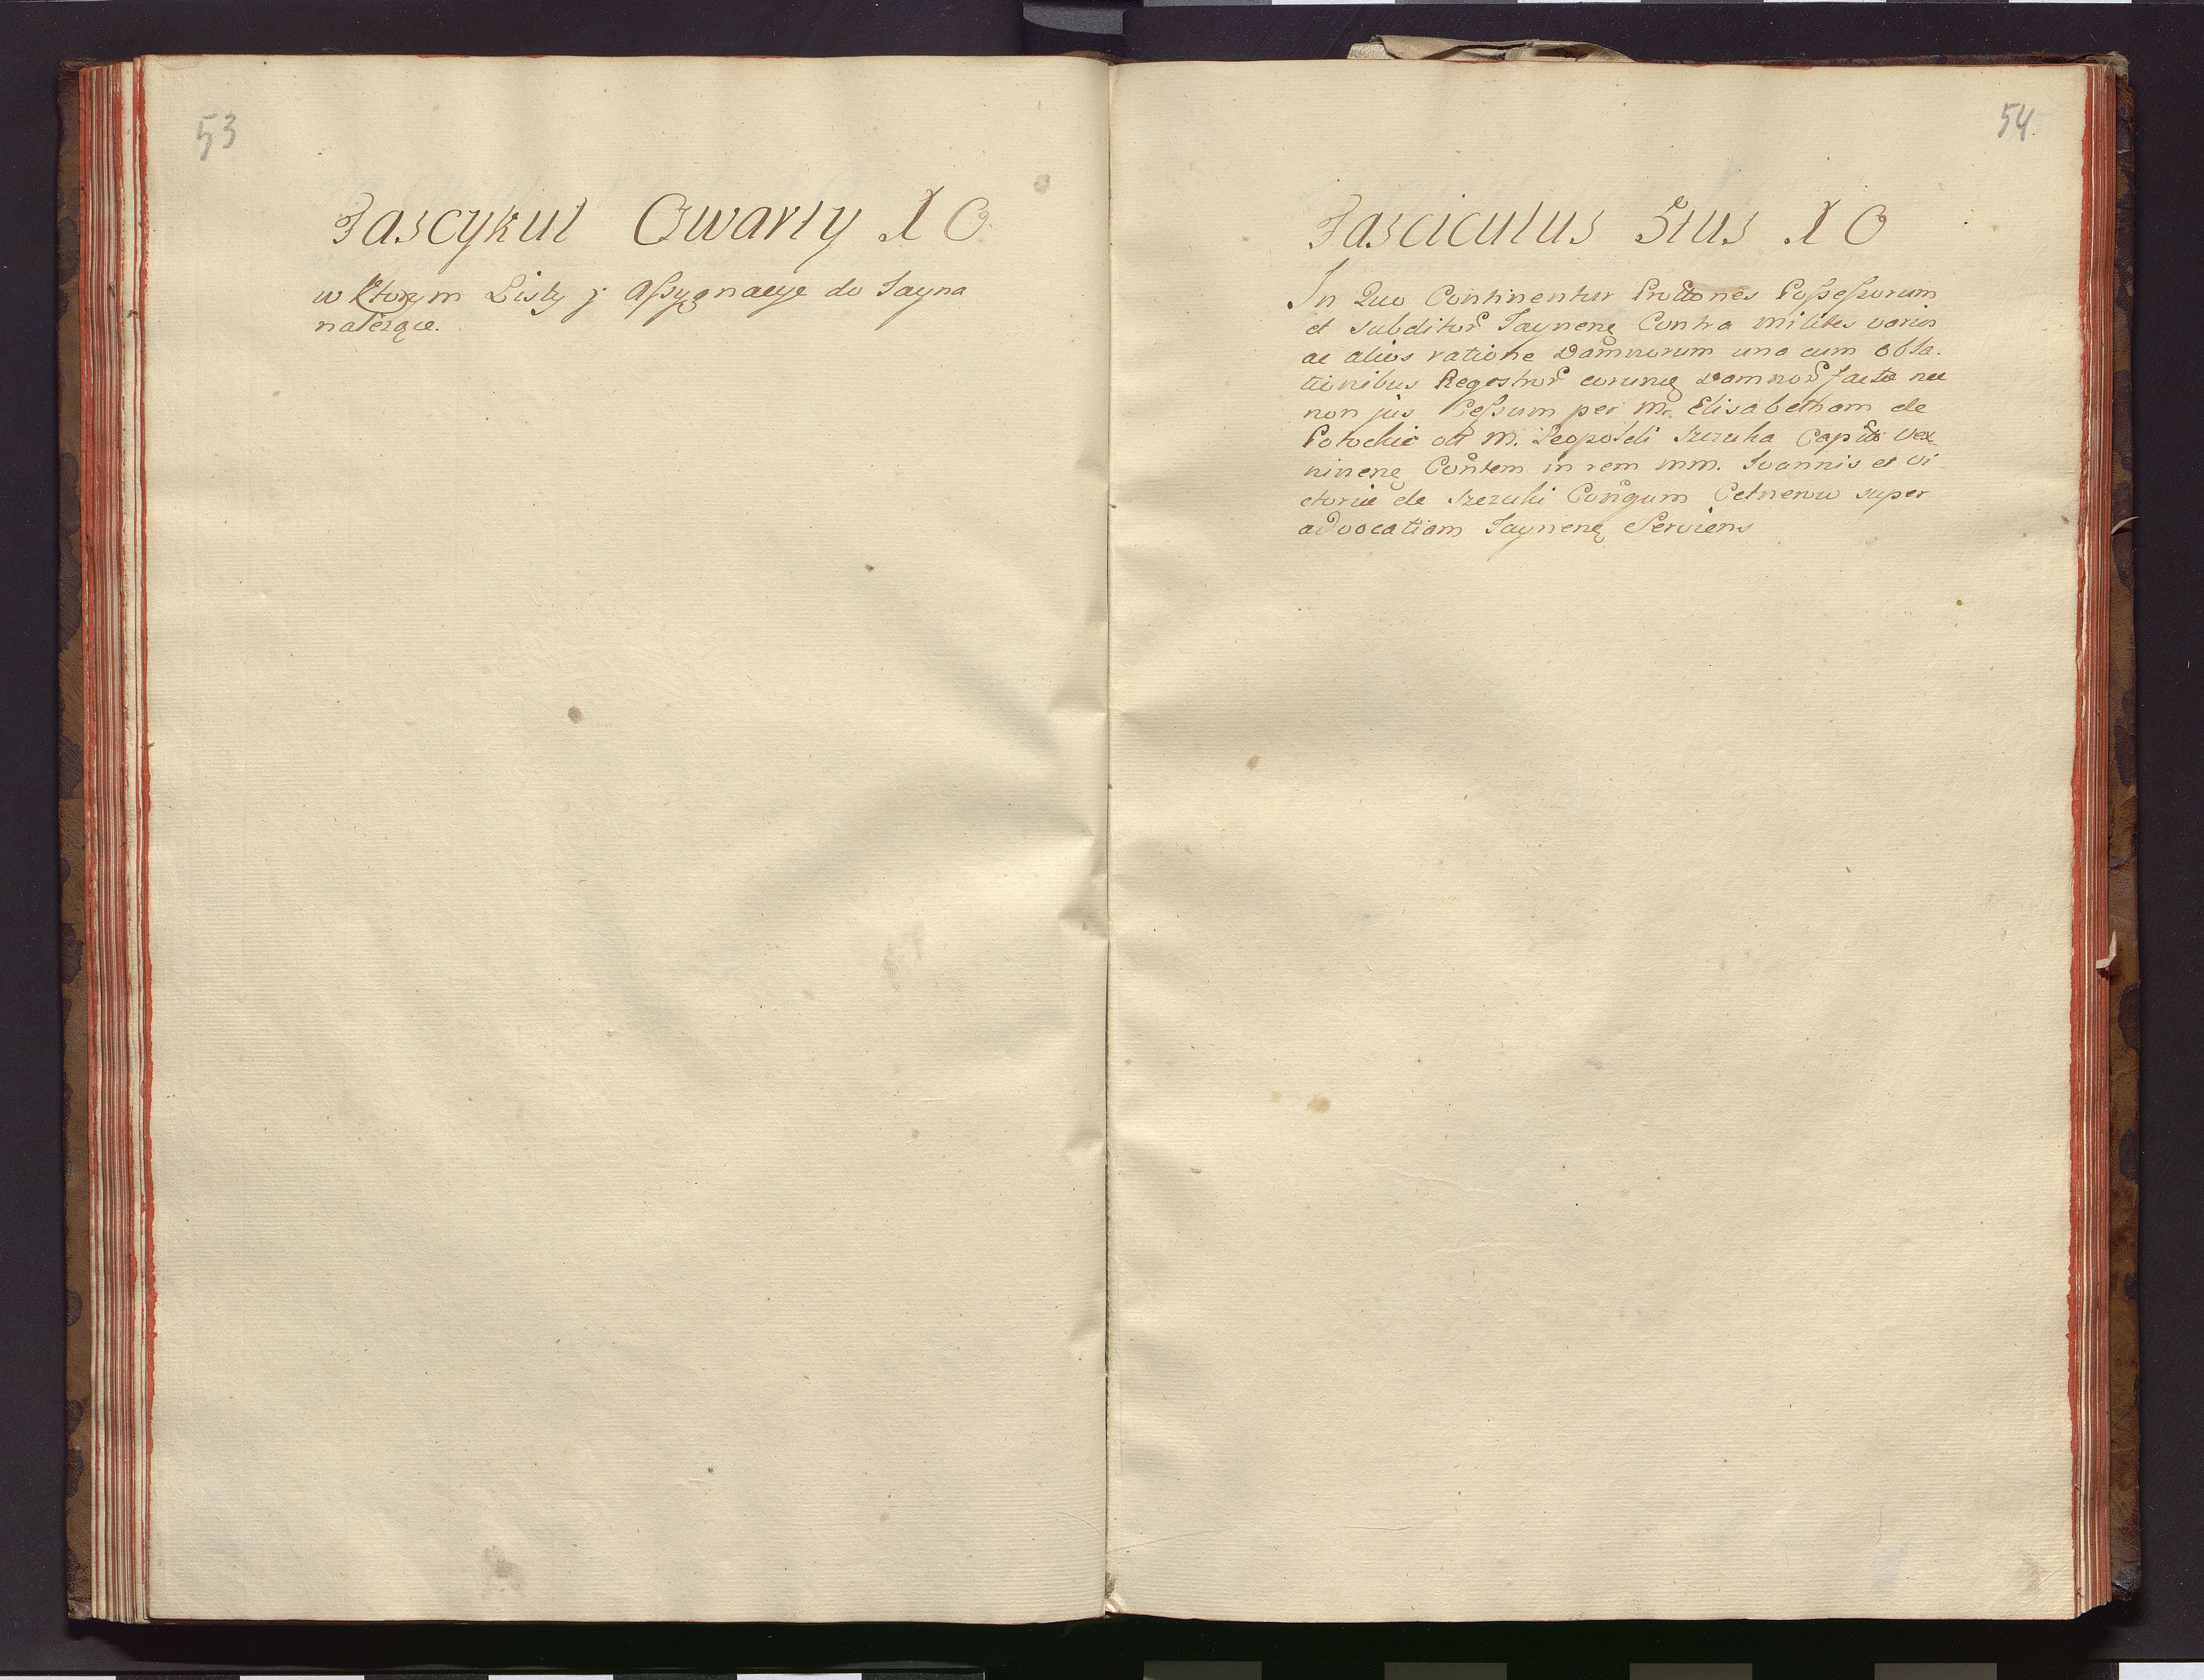 53
Fascykuł Czwarty X O
w ktorym Listy j Assygnacye do Jayna
należące.
54
Fasciculus 5tus X O
In Quo Continentur Prottones Possessorum
et subditor Saynenę Contra milites varios
ac alios ratione Damnorum una cum obla-
tionibus Regestror eorunę Damnor factis nec
non jus Cessum per M. Elisabetham de
Potockie olt M. Leopoldi Szczuka Capttis Wex
ninenę Contem in rem MM. Joannis et Vi
ctoriæ de Szczuki Congum Cetnerow super
advocatiam Saynenę Serviens